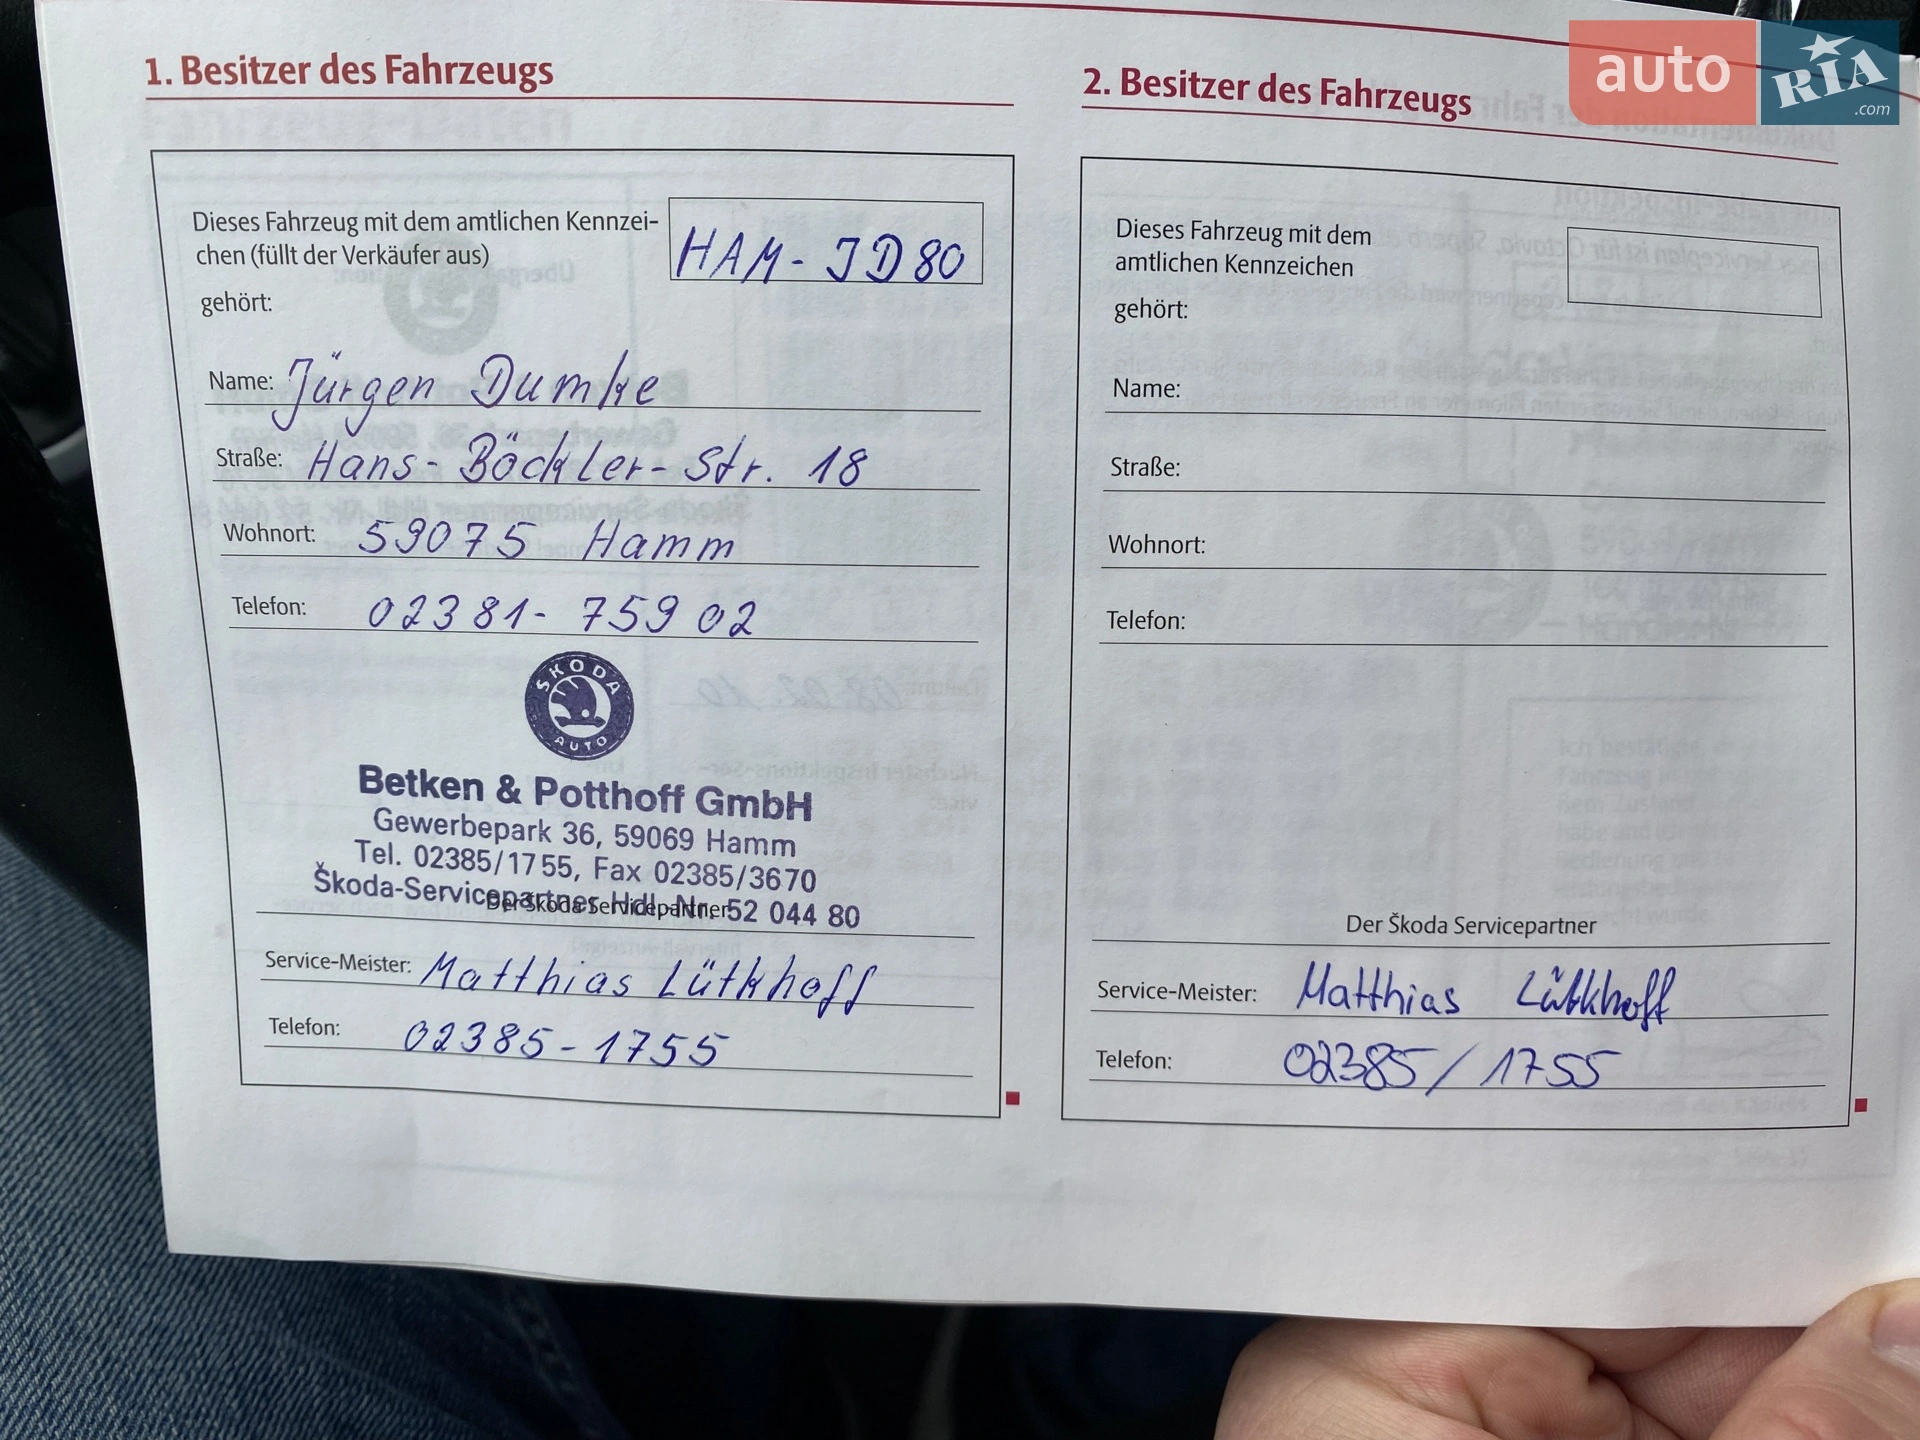 auto
RIA
.com
1. Besitzer des Fahrzeugs
Dieses Fahrzeug mit dem amtlichen Kennzei-
chen (füllt der Verkäufer aus)
HAM- JD80
gehört:
Name: Jürgen Dumke
Straße: Hans-Böckler-Str. 18
Wohnort: 59075 Hamm
Telefon: 02381- 759 02
SKODA
AUTO
Betken & Potthoff GmbH
Gewerbepark 36, 59069 Hamm
Tel. 02385/17 55, Fax 02385/36 70
Škoda-Servicepartner Hdl.-Nr. 52 044 80
Der Škoda Servicepartner
Service-Meister: Matthias Lütkhoff
Telefon: 02385-1755
2. Besitzer des Fahrzeugs
Dieses Fahrzeug mit dem
amtlichen Kennzeichen
gehört:
Name:
Straße:
Wohnort:
Telefon:
Der Škoda Servicepartner
Service-Meister: Matthias Lütkhoff
Telefon: 02385/1755